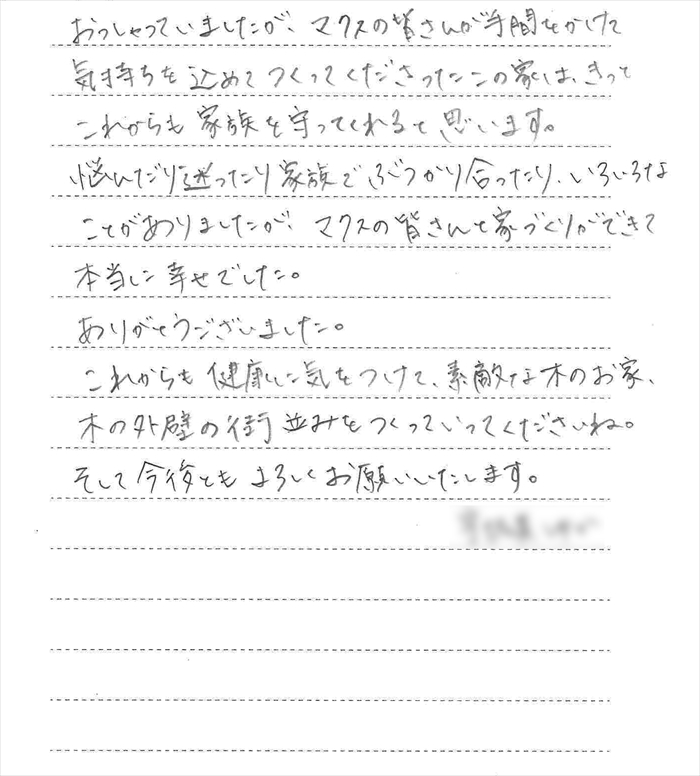 おっしゃっていましたが、マクスの皆さんが手間をかけて
気持ちを込めてつくってくださったこの家は、きっと
これからも家族を守ってくれると思います。
悩んだり迷ったり家族でぶつかり合ったり、いろいろな
ことがありましたが、マクスの皆さんと家づくりができて
本当に幸せでした。
ありがとうございました。
これからも健康に気をつけて、素敵な木のお家、
木の外壁の街並みをつくっていってくださいね。
そして今後ともよろしくお願いいたします。